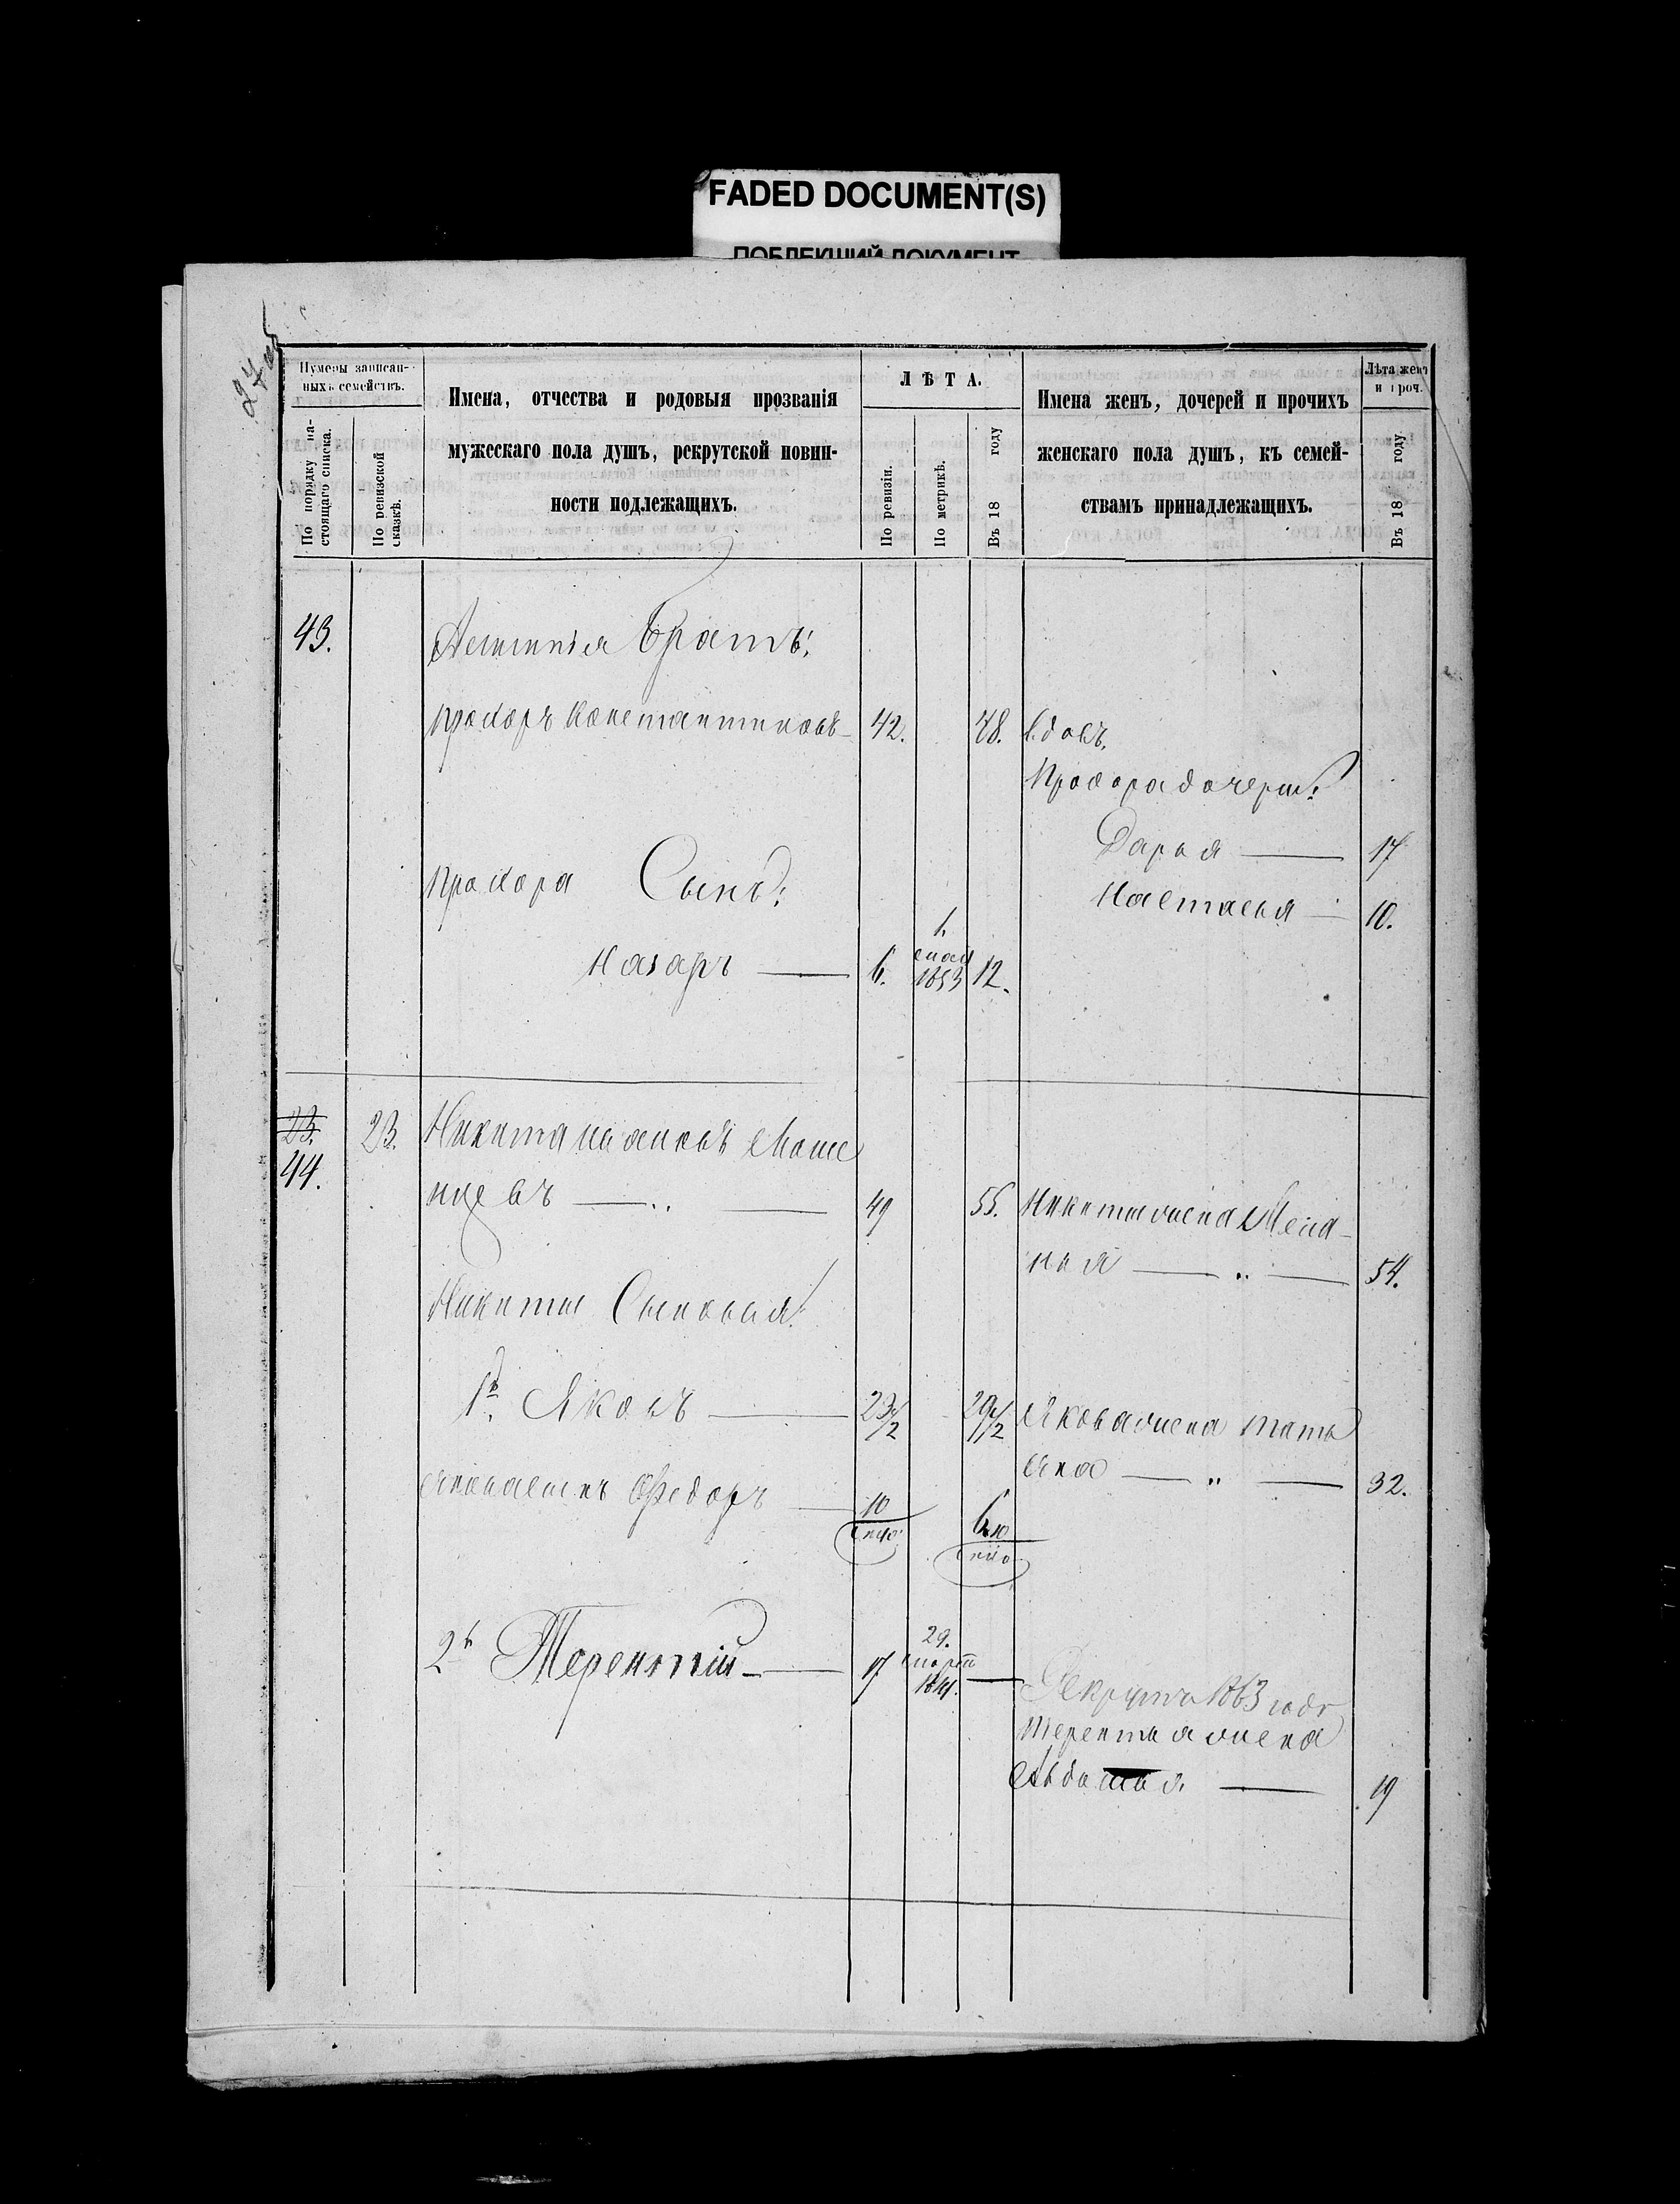 FADED DOCUMENT(S)
ПОБЛЕКШИЙ ДОКУМЕНТ
27 об
Нумеры записан-
ныхъ семействъ.
По порядку на-
стоящаго списка.
По ревизской
сказкѣ.
Имена, отчества и родовыя прозванія
мужескаго пола душъ, рекрутской повин-
ности подлежащихъ.
ЛѢТА.
По ревизіи.
По метрикѣ.
Въ 18 году
Имена женъ, дочерей и прочихъ
женскаго пола душъ, къ семей-
ствамъ принадлежащихъ.
Лѣта женъ
и проч.
Въ 18 году
43.
братъ:
Прохоръ Константиновъ 42. 48. вдовъ.
Прохора дочери:
Дарья — 17
Прохора Сынъ:
Настасья — 10.
Назаръ — 6. 1. 1853 12.
23.
44.
23. Никита Ивановъ
49 55. Никиты жена Мела-
нья — „ — 54.
Никиты Сыновья:
1й Яковъ — 23 1/2 29 1/2 Якова жена Тать
яна — „ — 32.
Якова сынъ Федоръ — 10
2й Терентій — 17 29. марта 1841. —
Рекрутъ 1863 года
Терентья жена
Авдотья — 19